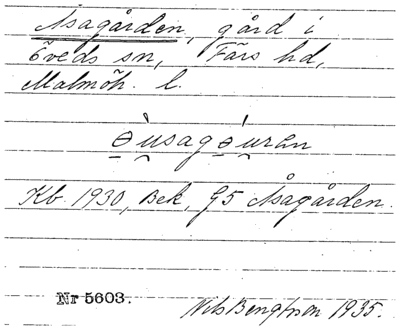 Åsagården, gård i
Öveds sn, Färs hd,
Malmöh. l.
ɵ̀u̯sagɵ́u̯rən
Kb. 1930, Bek, G5 Åsagården.
Nr 5603.
Nils Bengtsson 1935.